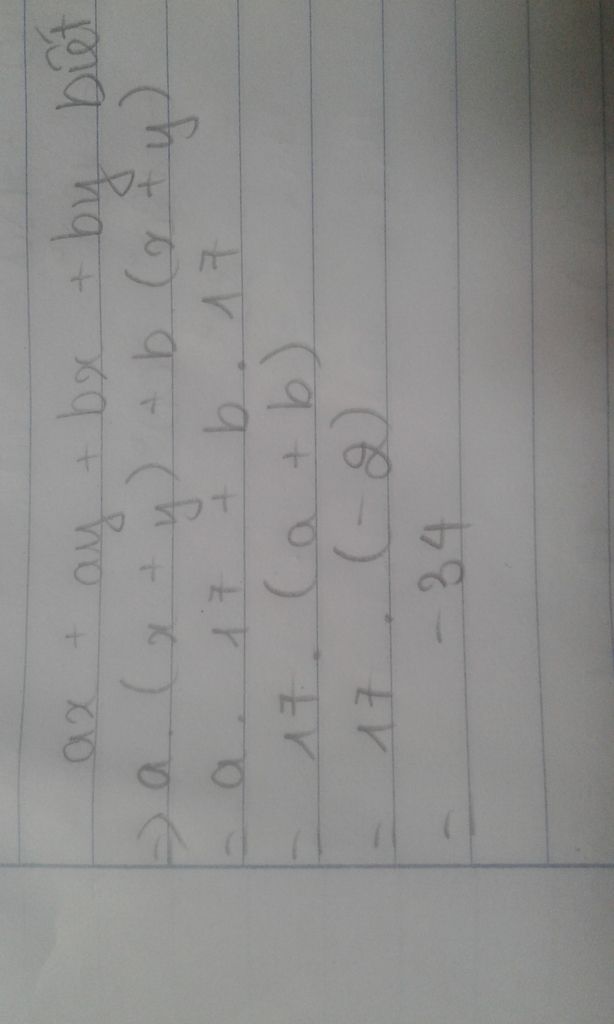 ax + ay + bx + by biết
=) a. (x + y) + b (x + y)
= a. 17 + b. 17
= 17. (a + b)
= 17. (-2)
= -34